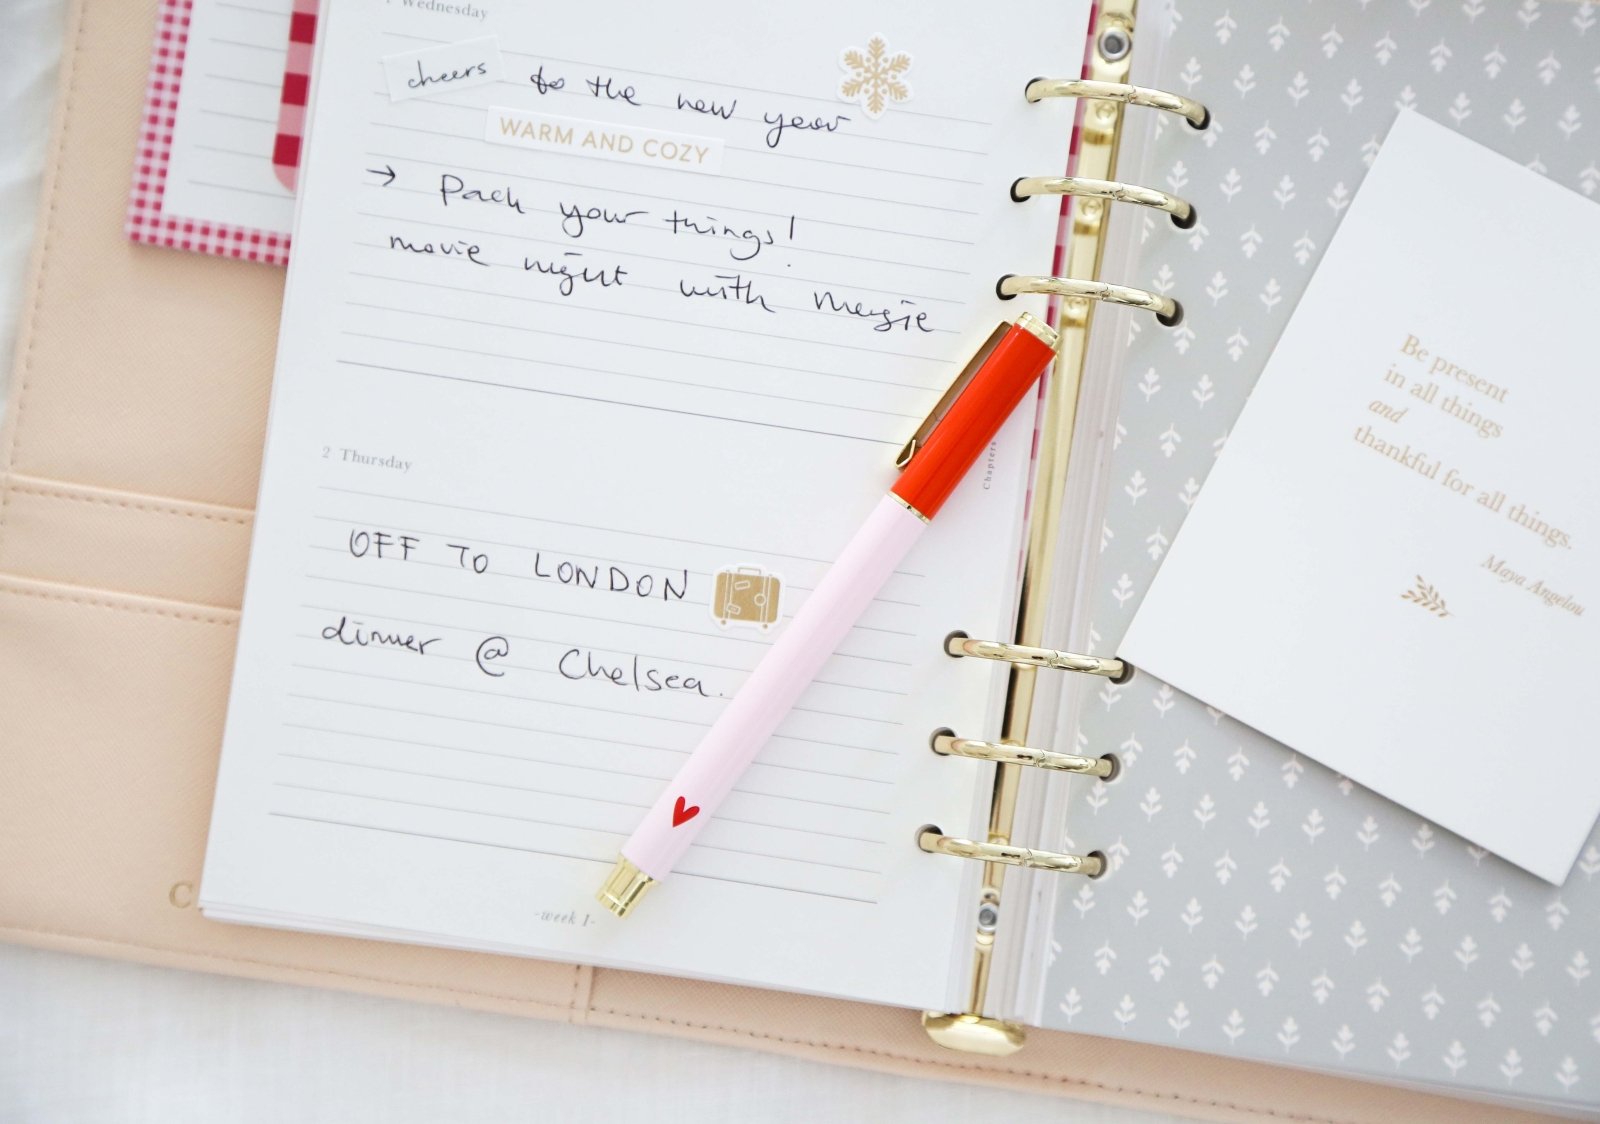 Wednesday
cheers to the new year
WARM AND COZY
→ Pack your things!
movie night with
2 Thursday
OFF TO LONDON
dinner @ Chelsea.
-week 1-
Chapters
C
Be present
in all things
and
thankful for all things.
Maya Angelou